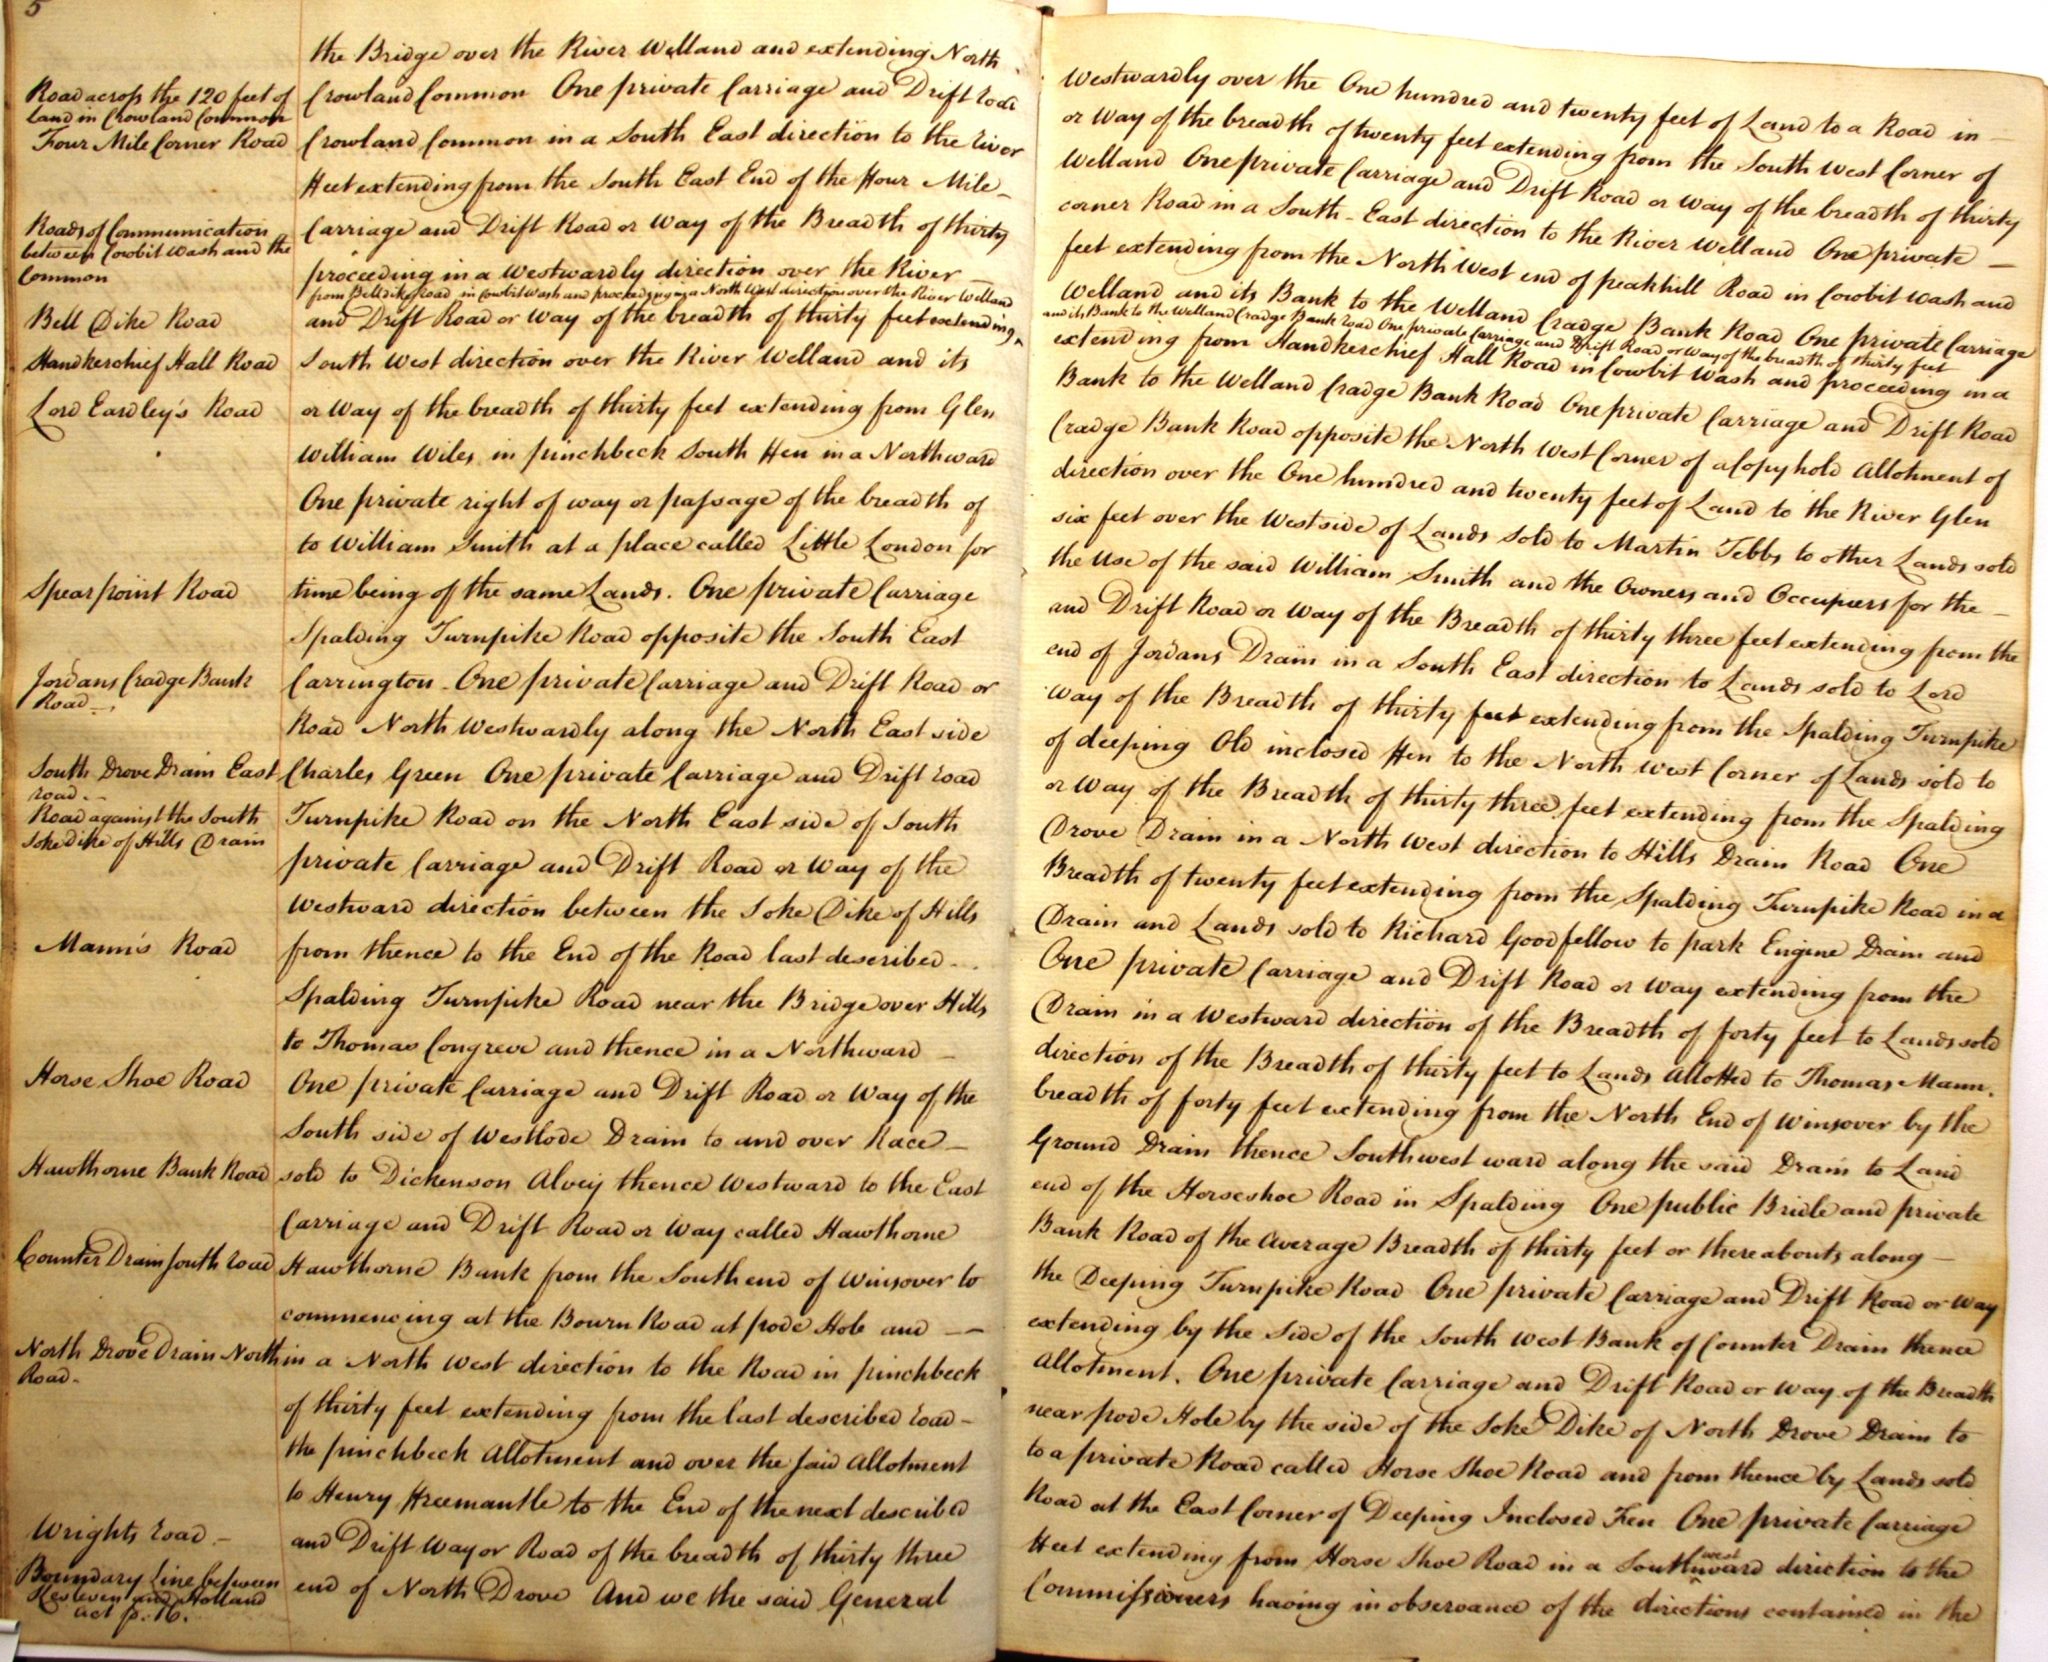 5
the Bridge over the River Welland and extending North Westwardly over the One hundred and twenty feet of Land to a Road in
Road across the 120 feet of
Land in Crowland Common
Crowland Common One private Carriage and Drift road or Way of the breadth of twenty feet extending from the South West Corner of
Four Mile Corner Road
Crowland Common in a South East direction to the river Welland One private Carriage and Drift Road or Way of the breadth of thirty
Feet extending from the South East End of the Four Mile corner Road in a South-East direction to the River Welland One private
Roads of Communication
between Cowbit Wash and the
Common
Carriage and Drift Road or Way of the Breadth of thirty feet extending from the North West end of peakhill Road in Cowbit Wash and
proceeding in a Westwardly direction over the River Welland and its Bank to the Welland Cradge Bank Road One private Carriage
from Belldike Road in Cowbit Wash and proceeding in a North West direction over the River Welland and its Bank to the Welland Cradge Bank road One private Carriage and Drift Road or Way of the breadth of thirty feet
Bell Dike Road
and Drift Road or Way of the breadth of thirty feet extending extending from Handkerchief Hall Road in Cowbit Wash and proceeding in a
Handkerchief Hall Road
South West direction over the River Welland and its Bank to the Welland Cradge Bank Road One private Carriage and Drift Road
Lord Eardley's Road
or Way of the breadth of thirty feet extending from Glen Cradge Bank Road opposite the North West Corner of a Copyhold Allotment of
William Wiles in pinchbeck South Fen in a Northward direction over the One hundred and twenty feet of Land to the River Glen
One private right of way or passage of the breadth of six feet over the West side of Lands sold to Martin Tebbs to other Lands sold
to William Smith at a place called Little London for the Use of the said William Smith and the Owners and Occupiers for the
Spearpoint Road
time being of the same Lands. One private Carriage and Drift Road or Way of the Breadth of thirty three feet extending from the
Spalding Turnpike Road opposite the South East end of Jordans Drain in a South East direction to Lands sold to Lord
Jordans Cradge Bank
Road
Carrington One private Carriage and Drift Road or Way of the Breadth of thirty feet extending from the Spalding Turnpike
Road North Westwardly along the North East side of deeping Old inclosed Fen to the North West Corner of Lands sold to
South Drove Drain East
road
Charles Green One private Carriage and Drift road or Way of the Breadth of thirty three feet extending from the Spalding
Road against the South
soke dike of Hills Drain
Turnpike Road on the North East side of South Drove Drain in a North West direction to Hills Drain Road One
private Carriage and Drift Road or Way of the Breadth of twenty feet extending from the Spalding Turnpike Road in a
Westward direction between the Soke Dike of Hills Drain and Lands sold to Richard Goodfellow to park Engine Drain and
Mann's Road
from thence to the End of the Road last described One private Carriage and Drift Road or Way extending from the
Spalding Turnpike Road near the Bridge over Hills Drain in a Westward direction of the Breadth of forty feet to Lands sold
to Thomas Congreve and thence in a Northward direction of the Breadth of thirty feet to Lands Allotted to Thomas Mann.
Horse Shoe Road
One private Carriage and Drift Road or Way of the breadth of forty feet extending from the North End of Winsover by the
South side of Westlode Drain to and over Race Ground Drain thence Southwestward along the said Drain to Land
Hawthorne Bank Road
sold to Dickenson Alvey thence Westward to the East end of the Horseshoe Road in Spalding One public Bridle and private
Carriage and Drift Road or Way called Hawthorne Bank Road of the Average Breadth of thirty feet or thereabouts along
Counter Drain south road
Hawthorne Bank from the South end of Winsover to the Deeping Turnpike Road One private Carriage and Drift Road or Way
commencing at the Bourn Road at pode Hole and extending by the Side of the South West Bank of Counter Drain thence
North Drove Drain North
Road
in a North West direction to the Road in pinchbeck Allotment. One private Carriage and Drift Road or Way of the Breadth
of thirty feet extending from the last described road near pode Hole by the side of the Soke Dike of North Drove Drain to
the pinchbeck Allotment and over the said Allotment to a private Road called Horse Shoe Road and from thence by Lands sold
to Henry Freemantle to the End of the next described Road at the East Corner of Deeping Inclosed Fen One private Carriage
Wrights road
and Drift Way or Road of the breadth of thirty three Feet extending from Horse Shoe Road in a Southwestward direction to the
Boundary Line between
Kesteven and Holland
act p. 16.
end of North Drove And we the said General Commissioners having in observance of the directions contained in the